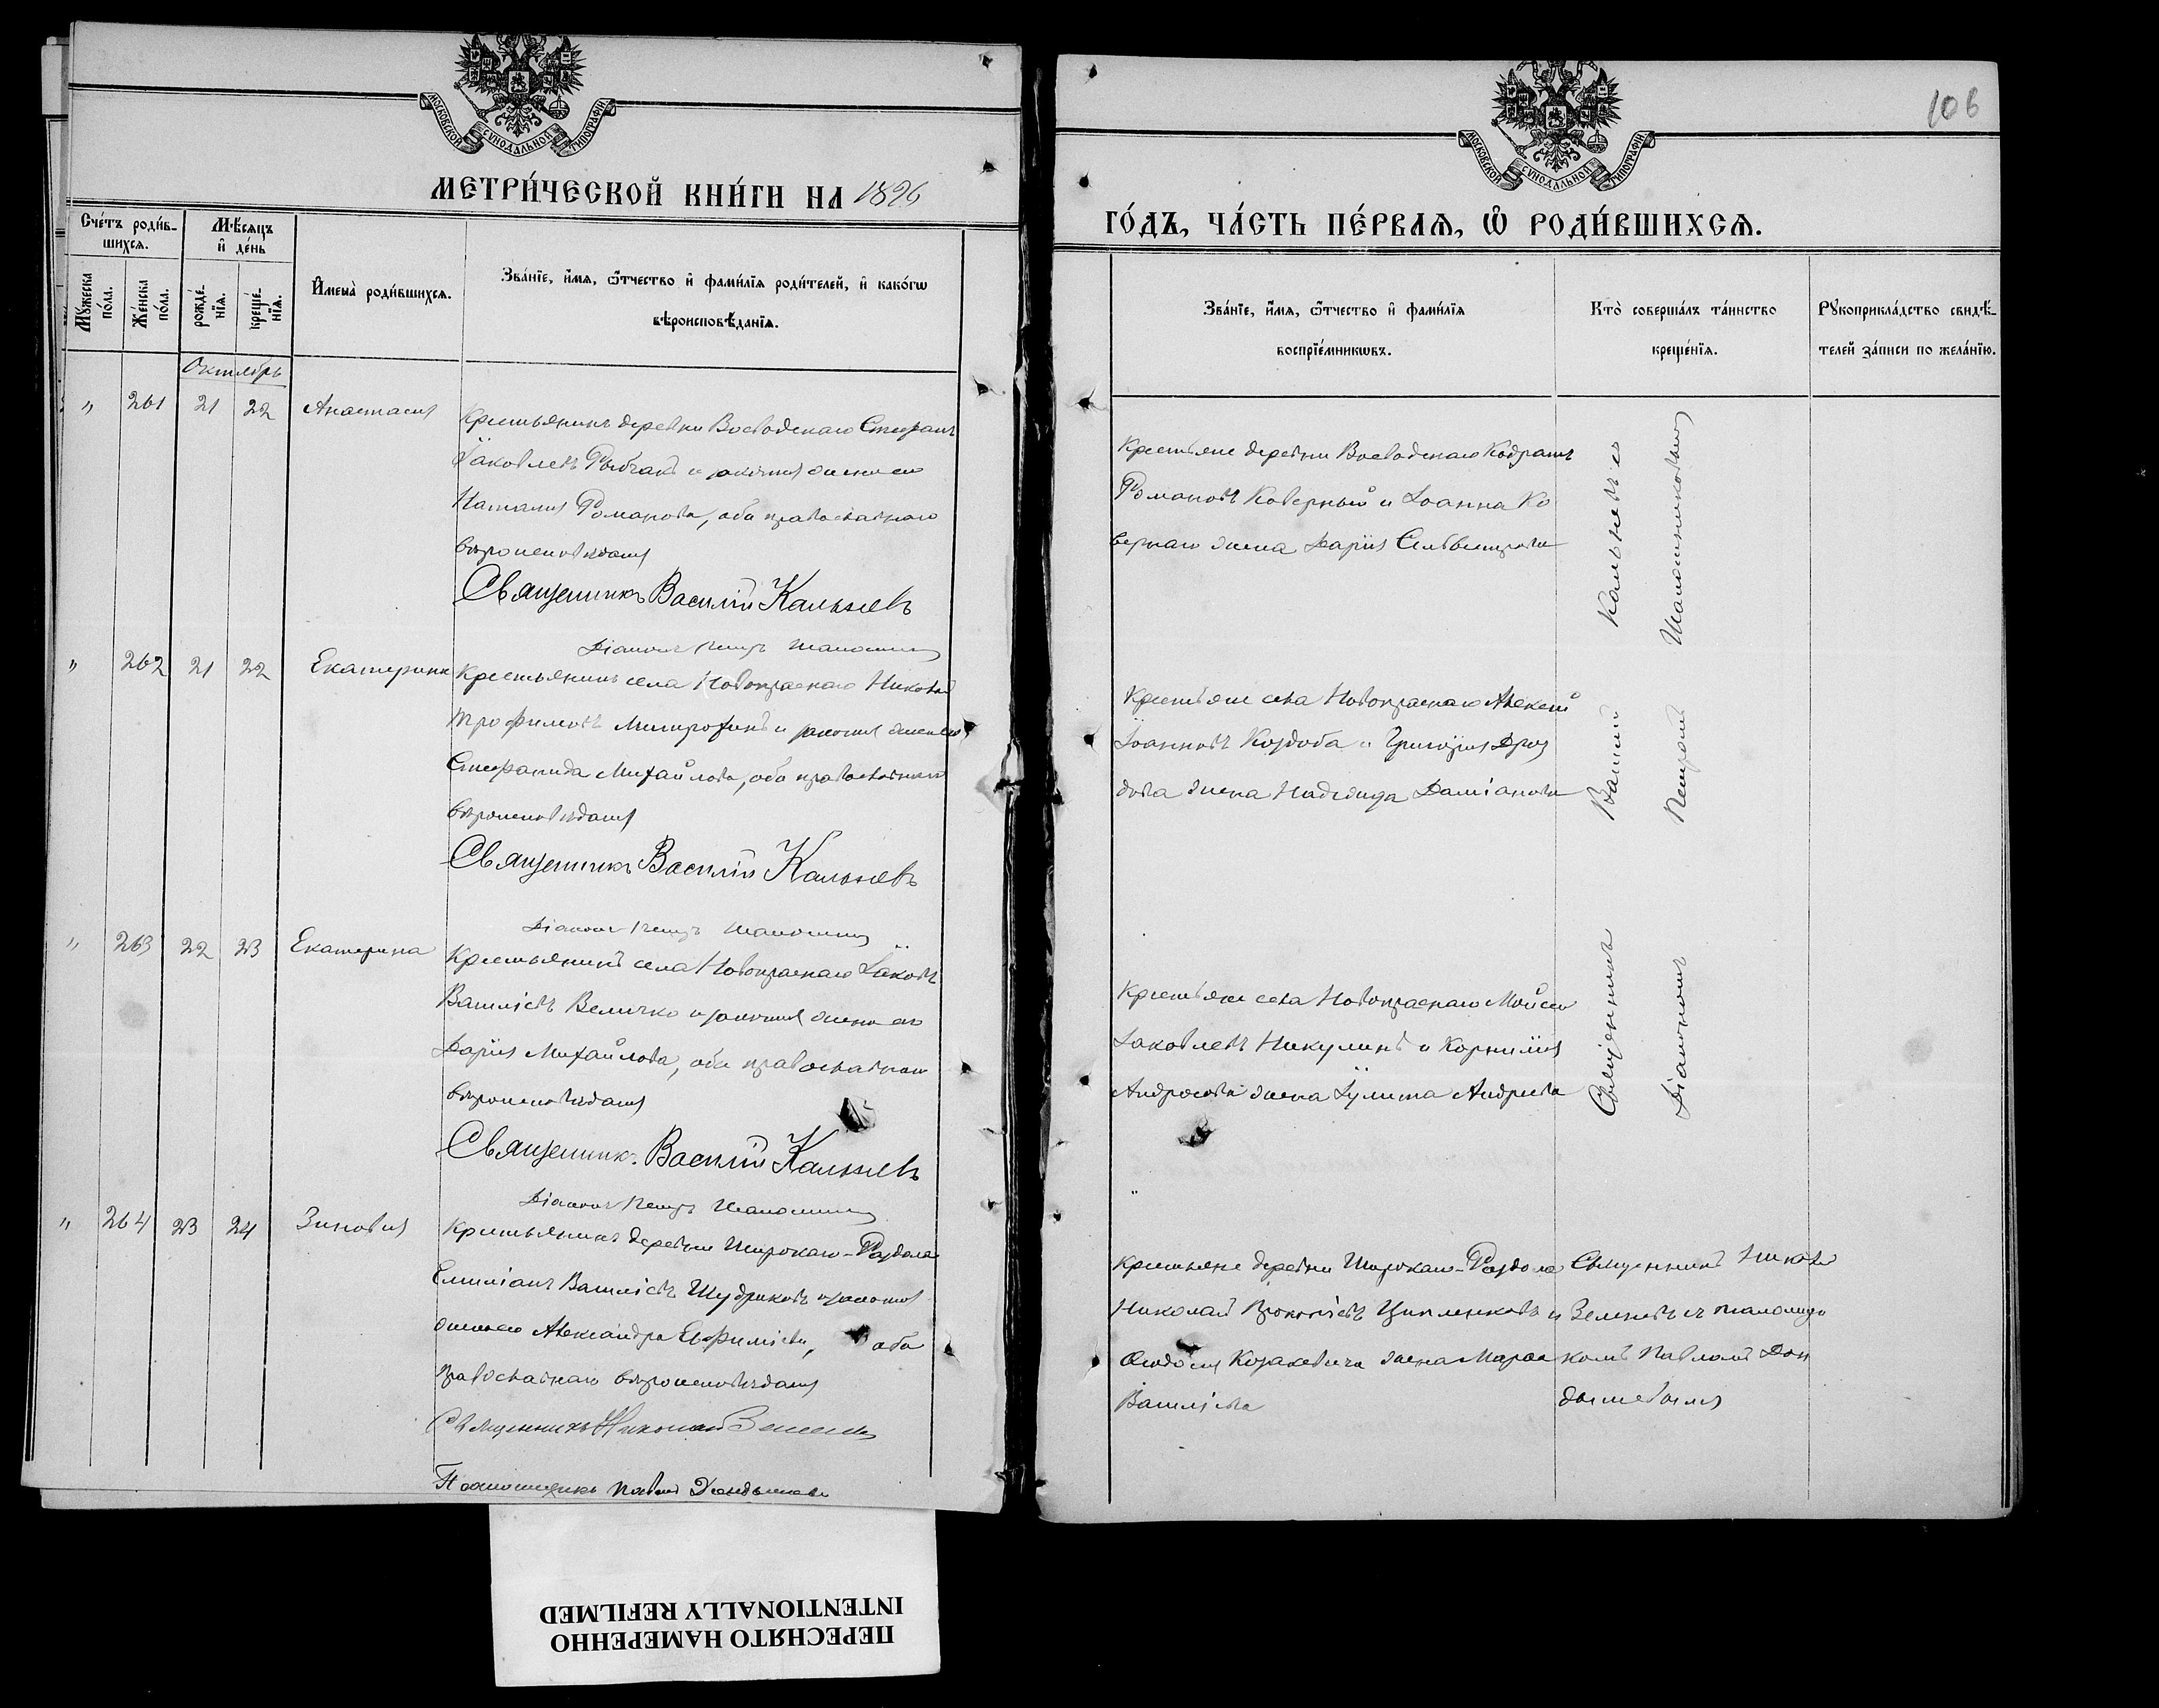 МОСКОВСКОЙ СУНОДАЛЬНОЙ ТИПОГРАФІИ
МЕТРИ́ЧЕСКОЙ КНИ́ГИ НА 1896
Сче́тъ роди́в-
шихся.
Мѣ́сяцъ
и҆ де́нь
Му́жеска
по́ла.
Же́нска
по́ла.
рожде́-
нїя.
креще́-
нїя.
И҆мена̀ роди́вшихся.
Зва́нїе, и҆́мя, ѻ҆́тчество и҆ фами́лїя роди́телей, и҆ како́гѡ
вѣроисповѣ́данїя.
Октябрь
" 261 21 22 Анастасія
Крестьянинъ деревни Воеводскаго Стефанъ
Іаковлевъ Рыбчакъ и законная жена его
Наталія Романова, оба православнаго
вѣроисповѣданія
Священникъ Василій Кальневъ
Діаконъ Петръ
" 262 21 22 Екатерина
Крестьянинъ села Новокраснаго Николай
Трофимовъ Митрофанъ и законная жена его
Стефанида Михайлова, оба православнаго
вѣроисповѣданія
Священникъ Василій Кальневъ
Діаконъ Петръ
" 263 22 23 Екатерина
Крестьянинъ села Новокраснаго Іаковъ
Василіевъ Величко и законная жена его
Дарія Михайлова, оба православнаго
вѣроисповѣданія
Священникъ Василій Кальневъ
Діаконъ Петръ
" 264 23 24 Зиновія
Крестьянинъ деревни Широкаго-Раздола
Емиліанъ Василіевъ Щудриковъ и законная
жена его Александра Евфиміева, оба
православнаго вѣроисповѣданія
Священникъ Николай Зеленевъ
Псаломщикъ Павелъ
МОСКОВСКОЙ СУНОДАЛЬНОЙ ТИПОГРАФІИ
106
ГО́ДЪ, ЧА́СТЬ ПЕ́РВАЯ, Ѽ РОДИ́ВШИХСЯ.
Зва́нїе, и҆́мя, ѻ҆́тчество и҆ фами́лїя
воспрїе́мникѡвъ.
Кто̀ соверша́лъ та́инство
креще́нїя.
Рꙋкоприкла́дство свидѣ́-
телей за́писи по жела́нїю.
Крестьяне деревни Воеводскаго Кодратъ
Романовъ Коверный и Іоанна Ко
вернаго жена Дарія Сильвестрова
Крестьяне села Новокраснаго Алексій
Іоанновъ Коздоба и Григорія Дроз
дова жена Надежда Даміанова
Крестьяне села Новокраснаго Моисей
Іаковлевъ Никулинъ и Корнилія
Андросова жена Іулита Андреева
Священникъ Василій Кальневъ съ
Діакономъ Петромъ
Крестьяне деревни Широкаго-Раздола
Николай Прокопіевъ Цыпленковъ и
Ѳеодосія Козакевича жена Марѳа
Василіева
Священникъ Николай
Зеленевъ съ псаломщи
комъ Павломъ Дон
дышевымъ
ПЕРЕСНЯТО НАМЕРЕННО
INTENTIONALLY REFILMED